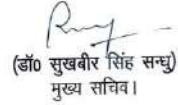 (डॉ0 सुखबीर सिंह सन्धु)
मुख्य सचिव।